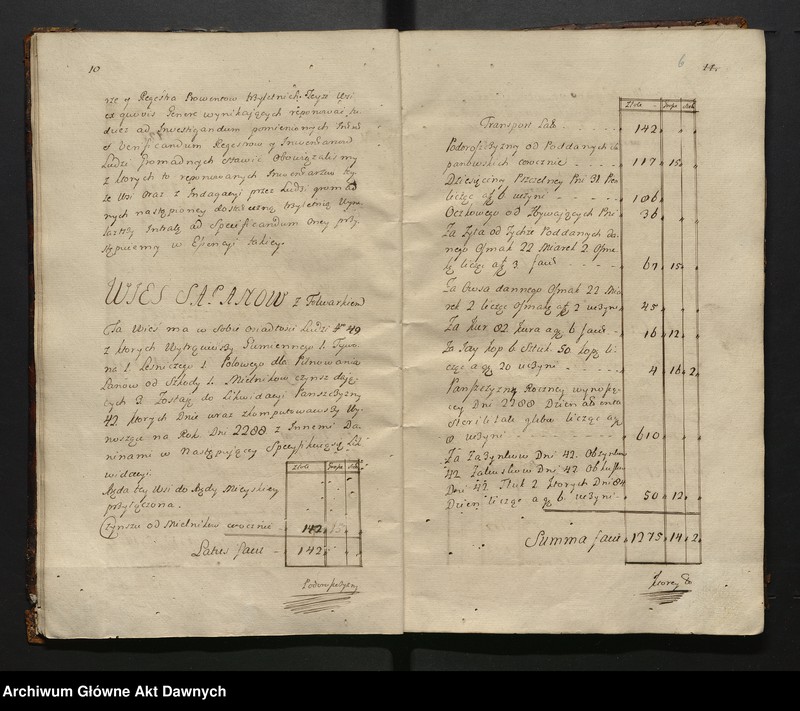 10
rze y Regestra Prowentow trzyletnich Teyze Wsi
ex quovis Genere wynikaiących reponować tu-
dziesz ad Investigandum pomienionych
et Verificandum Regestrow y Inwentarzow
Ludzi Gromadnych stawić Obowiązaliśmy
z ktorych to reponowanych Inwentarzow
że Wsi oraz z Indagacyi przez Ludzi gromad
nych następioney dostateczną trzyletnią
Intratę ad Specificandum Oney przy-
stępuiemy w Esencyi takiey.
WIES SAPANOW z Folwarkiem
Ta Wieś ma w Sobie Osiadłości Ludzi 49
z ktorych Wytrąciwszy Gumiennego 1. Tywo-
na 1 Leśniczego 1 Polowego dla Pilnowania
Łanow od Szkody 1. Mielnikow czynsz daią-
cych 3 Zostaie do Likwidacyi Pańszczyzny
42 ktorych Dnie wraz zkomputowawszy Wy-
noszące na Rok Dni 2288 z Innemi Da-
ninami w Następuiący Specyfikuiąsię Lik-
widacyi.
Złote Grosze
Aręda tey Wsi do Arędy Mieyskiey
przyłączona.
Czynsze od Mielnikow corocznie 142
Latus facit 142
Podorosczyzny
6 11.
Złote Grosze
Transport Lat. 142
Podorosczyzny od Poddanych Sa-
panowskich corocznie 117 15
Dziesięciny Pszczelney Pni 31 Pień
licząc a 6 uczyni 186
Oczkowego od Zbywaiących Pni 36
Za Zyta od Tychże Poddanych da-
nego Osmak 22 Miarek 2 Osma-
kę licząc a 3 facit 67 15
Za Owsa dannego Osmak 22 Mia
rek 2 licząc Osmakę a 2 uczyni 45
Za Kur 82 Kura a gr 6 facit 16 12
Za Jay Kop 6 Sztuk 50 Kopę li-
cząc a gr 20 uczyni 4 16 2
Pańszczyzny Roczney wynoszą-
cey Dni 2288 Dzień attenta
sterilitate glebae licząc a gr
8 uczyni 610
Za Zażynkow Dni 42. Obżynkow
42 Zakoskow Dni 42 Obkoskow
Dni 42 Tłuk 2 ktorych Dni 84
Dzień licząc a gr 6 uczyni 50 12
Summa facit 1275 14 2